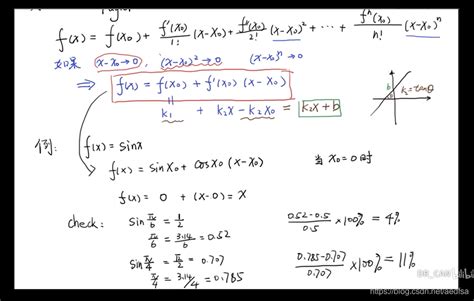 f(x) = f(x₀) + f'(x₀)/1! (x-x₀) + f''(x₀)/2! (x-x₀)² + ··· + fⁿ(x₀)/n! (x-x₀)ⁿ
如果 (x-x₀→0), (x-x₀)²→0 (x-x₀)ⁿ→0
⇒ f(x) = f(x₀) + f'(x₀) (x-x₀) k₂=tanθ
k₁ + k₂x - k₂x₀ = k₂x + b
例: f(x) = sinx
f(x) = sinx₀ + cosx₀ (x-x₀) 当 x₀=0 时
f(x) = 0 + (x-0) = x
check: sin π/6 = 1/2 (0.52-0.5)/0.5 × 100% = 4%
π/6 = 3.14/6 = 0.52
sin π/4 = √2/2 = 0.707 (0.785-0.707)/0.707 × 100% = 11%
π/4 = 3.14/4 = 0.785
https://blog.csdn.net/aedfsa